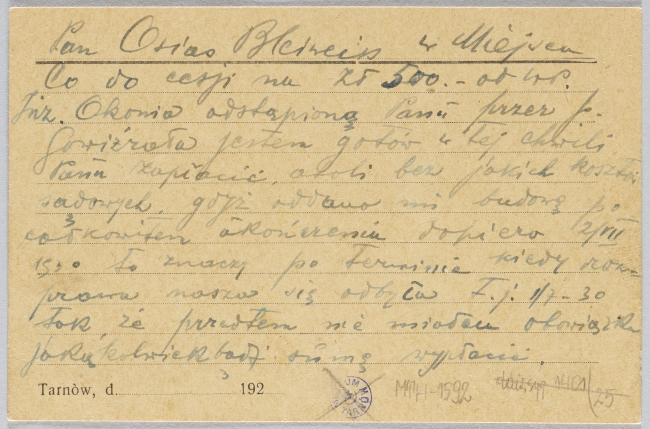 Pan Osias Bleiweiss w Miejscu
Co do cesji na zł 500.- od WP.
Inż. Okonia odstąpioną Panu przez p.
jestem gotów w tej chwili
Panu zapłacić, atoli bez jakich kosztów
sądowych, gdyż oddano mi budowę po
całkowitem ukończeniu dopiero 12/VII
1930 to znaczy po terminie kiedy roz-
prawa nasza się odbyła t.j. 1/7-30
tak, że przedtem nie miałem obowiązku
jakąkolwiekbądź sumę wypłacić.
Tarnòw, d. 192
MT-H-1592
25